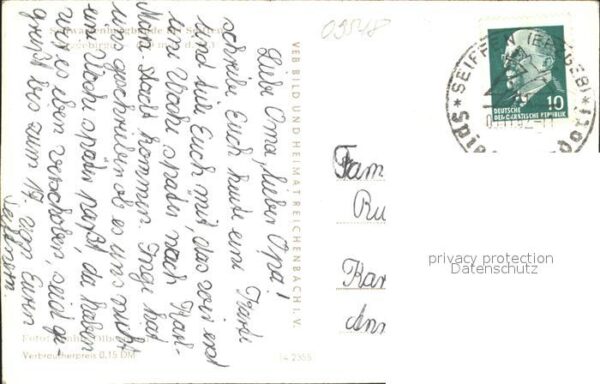 Schwartenbergbaude bei Seiffen
Erzgebirge
Liebe Oma, lieber Opa!
schreibe Euch heute eine Karte
und teile Euch mit, das wir erst
eine Woche später nach Karl-
Marx-Stadt kommen. Inge hat
uns geschrieben ob es uns nicht
eine Woche später paßt, da haben
wir es eben verschoben, seid ge-
grüßt bis zum 17. von Euren
Foto:
Verbraucherpreis 0,15 DM
VEB BILD UND HEIMAT REICHENBACH I. V.
14 2355
09548
SEIFFEN (ERZGEB)
10
DEUTSCHE
DEMOKRATISCHE REPUBLIK
Fam
Ru
Kar
Ann
privacy protection
Datenschutz